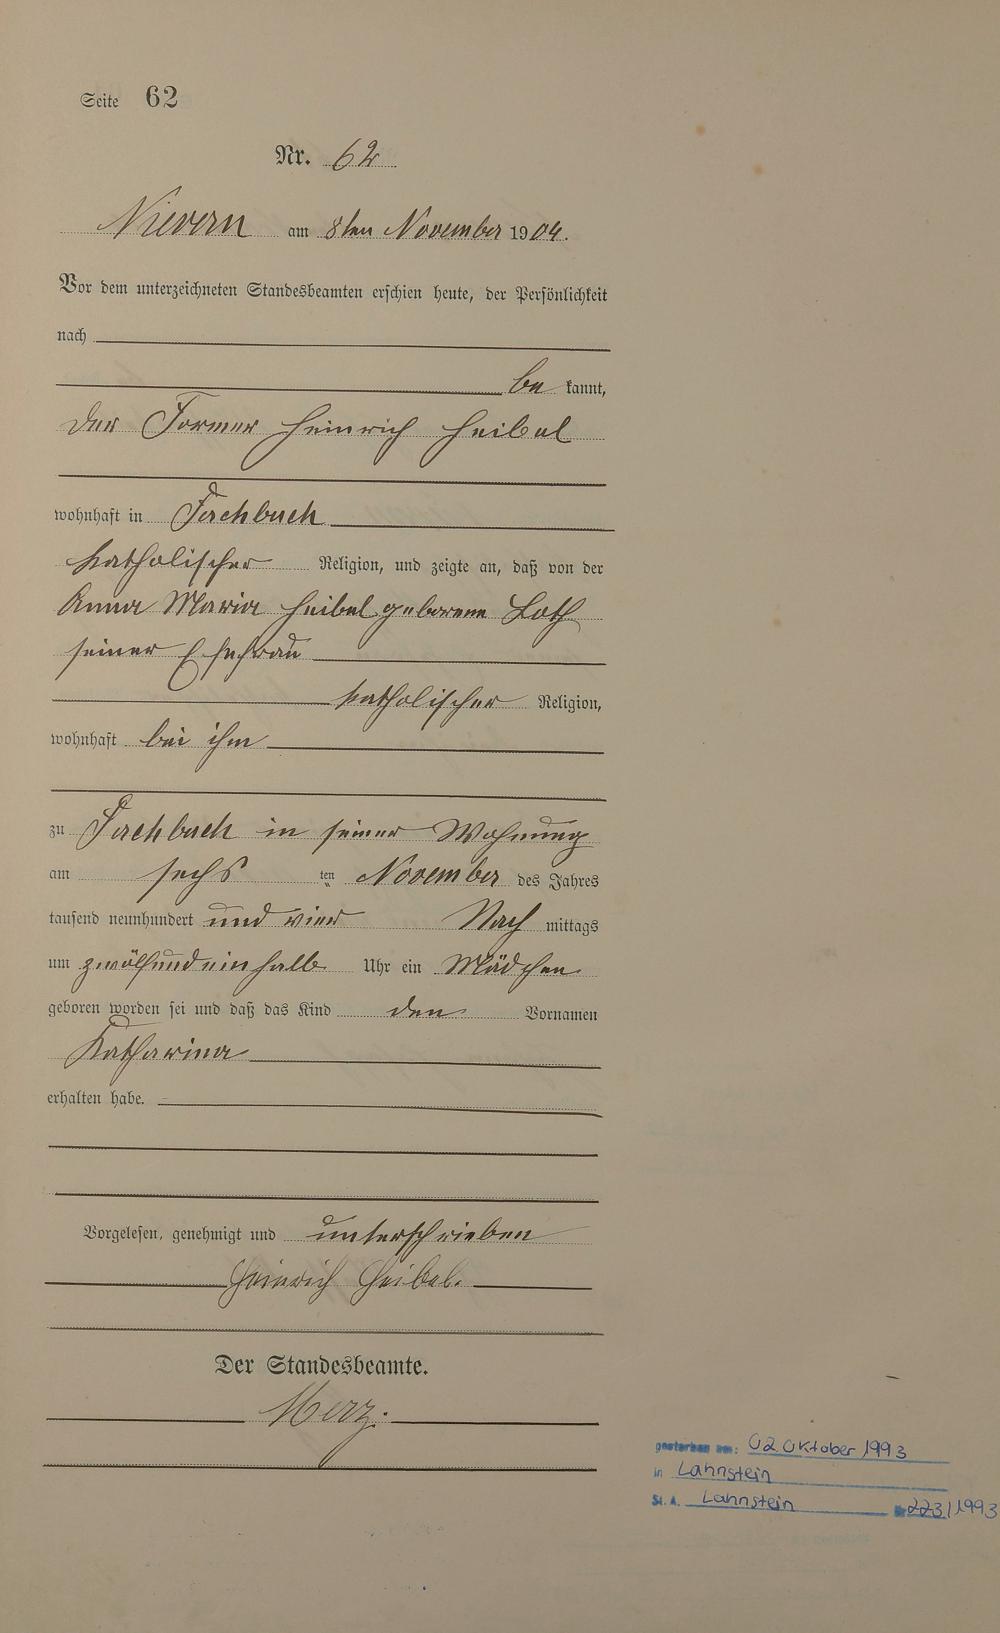 Seite 62
Nr. 62
Nievern am 8ten November 1904.
Vor dem unterzeichneten Standesbeamten erschien heute, der Persönlichkeit
nach
be kannt,
der Former Heinrich Heibel
wohnhaft in Fachbach
katholischer Religion, und zeigte an, daß von der
Anna Maria Heibel geborene Loth
seiner Ehefrau
katholischer Religion,
wohnhaft bei ihm
zu Fachbach in seiner Wohnung
am sechs ten November des Jahres
tausend neunhundert und vier Nach mittags
um zwölfundeinhalb Uhr ein Mädchen
geboren worden sei und daß das Kind den Vornamen
Katharina
erhalten habe.
Vorgelesen, genehmigt und unterschrieben
Heinrich Heibel.
Der Standesbeamte.
Merz.
gestorben am: 02. Oktober 1993
in Lahnstein
St. A. Lahnstein Nr. 223/1993